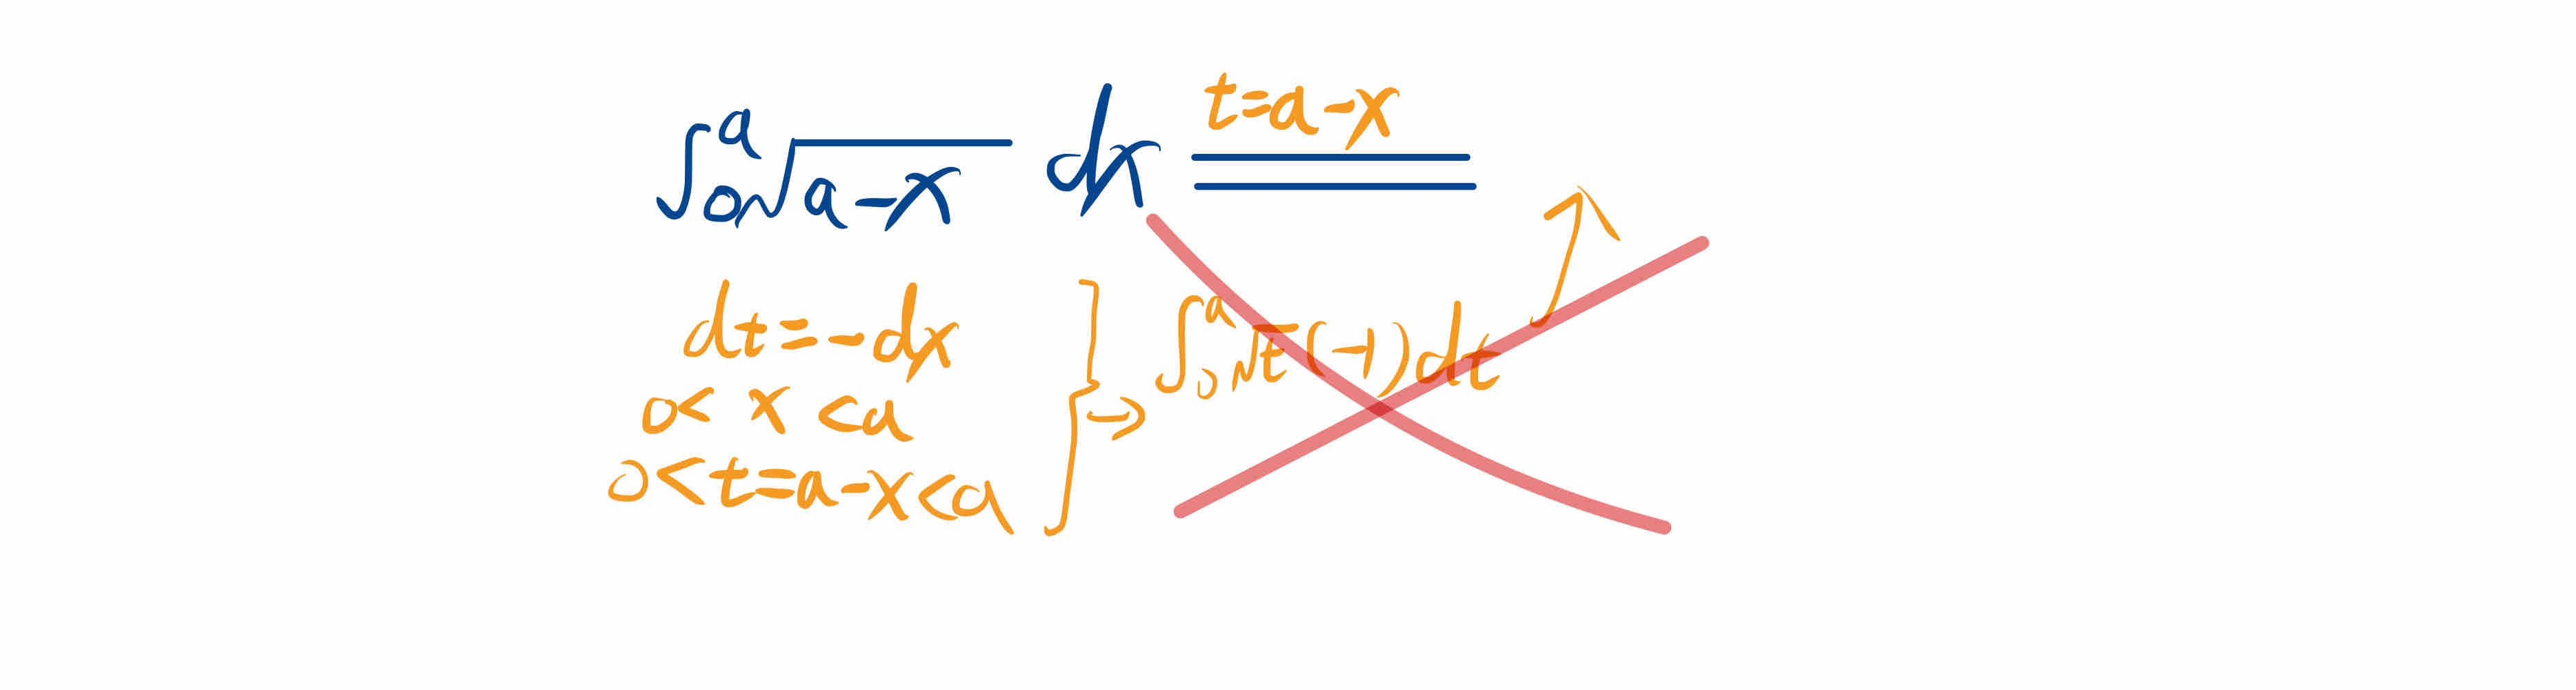 ∫₀ᵃ √(a-x) dx  t=a-x
dt=-dx
0< x <a
0<t=a-x<a
} → ∫₀ᵃ √t (-1) dt